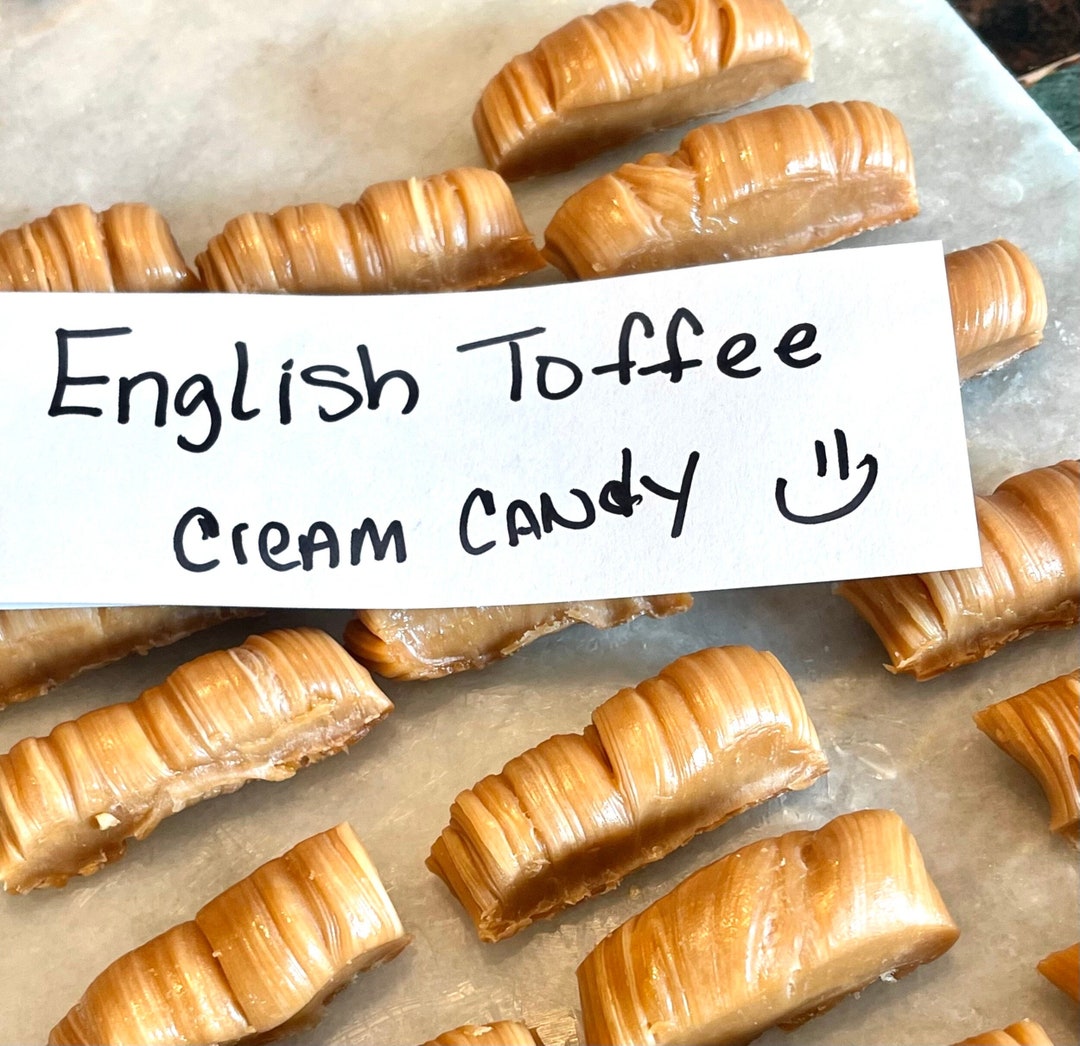 English Toffee
CreAM CANdy